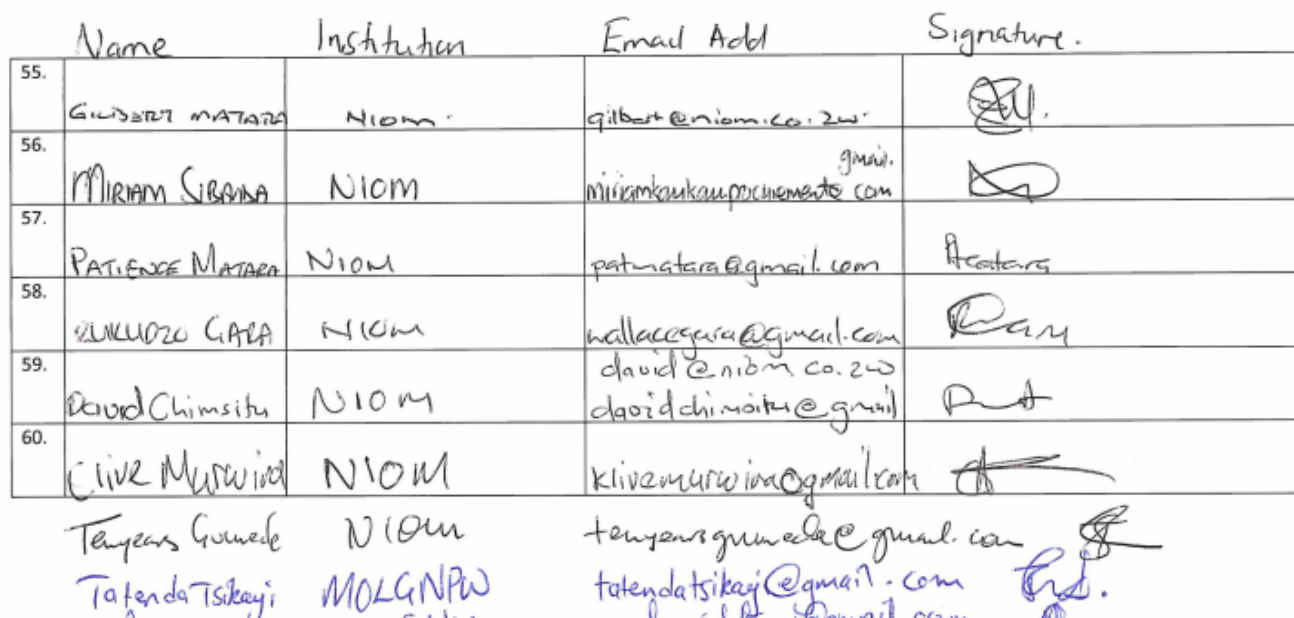 Name Institution Email Add Signature.
55.
GILBERT MATARA NIOM. gilbert@niom.co.zw.
56.
gmail.
MIRIAM SIBANDA NIOM com
57.
PATIENCE MATARA NIOM patmatara@gmail.com
58.
GARA NIOM wallacegara@gmail.com
59.
david@niom co.zw
David NIOM @gmail
60.
Clive Murwira NIOM klivemurwira@gmail.com
Tenyears Gumede NIOM tenyearsgumede@gmail.com
Tatenda Tsikayi MOLGNPW tatendatsikayi@gmail.com